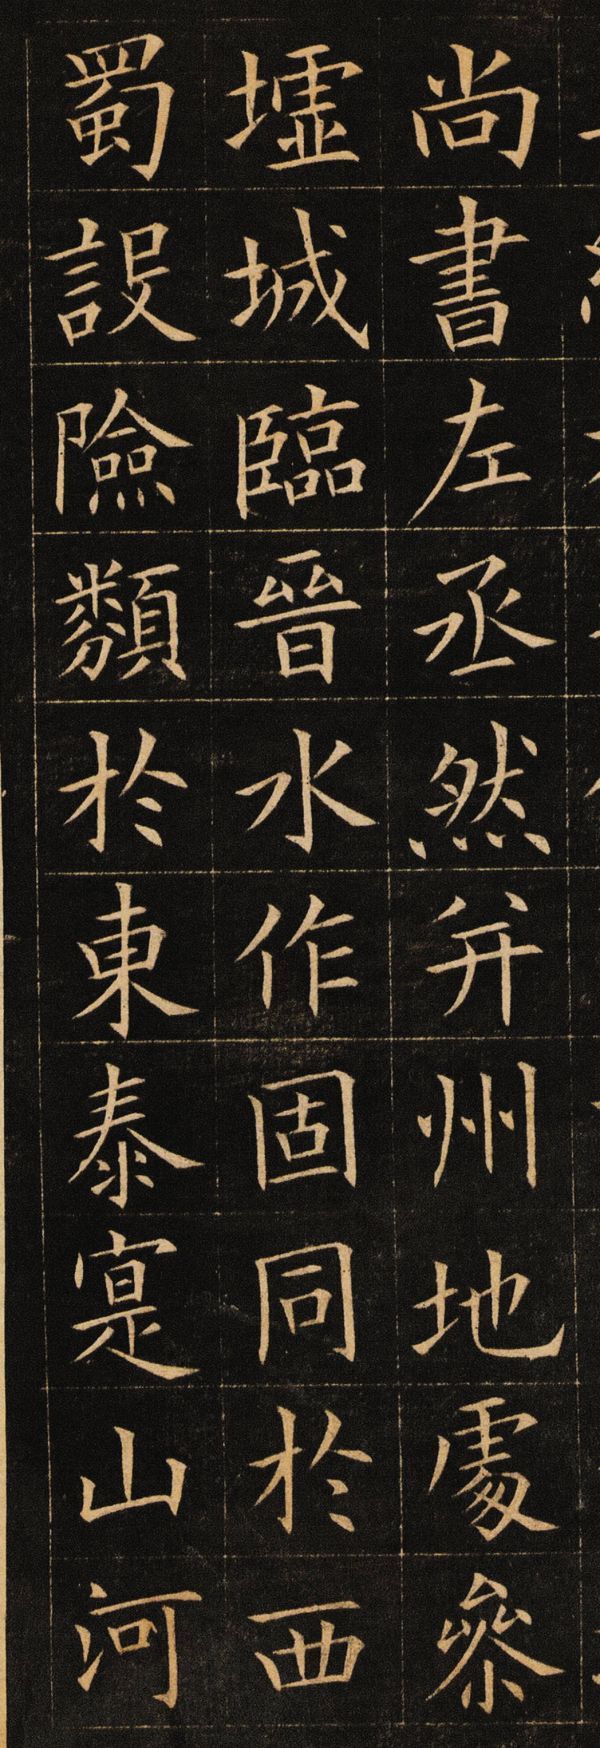 尚書左丞然并州地處參
墟城臨晉水作固同於西
蜀設險類於東秦寔山河